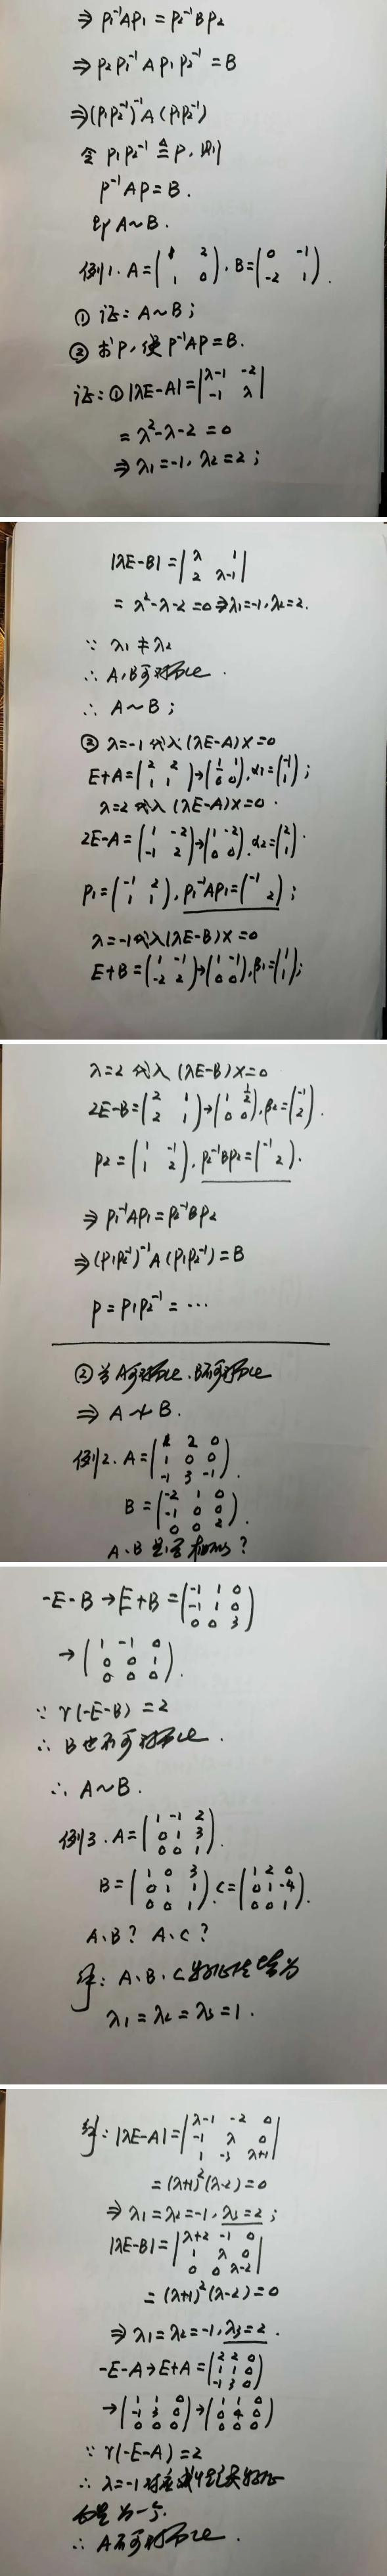 ⇒ P₁⁻¹AP₁ = P₂⁻¹BP₂
⇒ P₂P₁⁻¹AP₁P₂⁻¹ = B
⇒ (P₁P₂⁻¹)⁻¹A(P₁P₂⁻¹)
令 P₁P₂⁻¹ ≜ P, 则
P⁻¹AP = B.
即 A~B.
例1. A = (1 2; 1 0), B = (0 -1; -2 1).
① 证: A~B;
② 求P, 使 P⁻¹AP = B.
证: ① |λE-A| = |λ-1 -2; -1 λ|
= λ²-λ-2 = 0
⇒ λ₁=-1, λ₂=2;
|λE-B| = |λ 1; 2 λ-1|
= λ²-λ-2 = 0 ⇒ λ₁=-1, λ₂=2.
∵ λ₁≠λ₂
∴ A,B可对角化.
∴ A~B;
② λ=-1代入(λE-A)X=0
E+A = (2 2; 1 1) → (1 1; 0 0), α₁ = (-1; 1);
λ=2代入(λE-A)X=0.
2E-A = (1 -2; -1 2) → (1 -2; 0 0), α₂ = (2; 1).
P₁ = (-1 2; 1 1), P₁⁻¹AP₁ = (-1 ; 2);
λ=-1代入(λE-B)X=0
E+B = (1 -1; -2 2) → (1 -1; 0 0), β₁ = (1; 1);
λ=2代入(λE-B)X=0
2E-B = (2 1; 2 1) → (1 1/2; 0 0), β₂ = (-1; 2).
P₂ = (1 -1; 1 2), P₂⁻¹BP₂ = (-1 ; 2).
⇒ P₁⁻¹AP₁ = P₂⁻¹BP₂
⇒ (P₁P₂⁻¹)⁻¹A(P₁P₂⁻¹) = B
P = P₁P₂⁻¹ = ⋯
② 当A可对角化、B不可对角化
⇒ A≁B.
例2. A = (1 2 0; 1 0 0; -1 3 -1).
B = (-2 1 0; -1 0 0; 0 0 2).
A、B是否相似?
-E-B → E+B = (-1 1 0; -1 1 0; 0 0 3)
→ (1 -1 0; 0 0 1; 0 0 0).
∵ r(-E-B) = 2
∴ B也不可对角化.
∴ A~B.
例3. A = (1 -1 2; 0 1 3; 0 0 1).
B = (1 0 3; 0 1 1; 0 0 1), C = (1 2 0; 0 1 -4; 0 0 1).
A、B? A、C?
解: A、B、C特征值皆为
λ₁=λ₂=λ₃=1.
解: |λE-A| = |λ-1 -2 0; -1 λ 0; 1 -3 λ+1|
= (λ+1)²(λ-2) = 0
⇒ λ₁=λ₂=-1, λ₃=2;
|λE-B| = |λ+2 -1 0; 1 λ 0; 0 0 λ-2|
= (λ+1)²(λ-2) = 0
⇒ λ₁=λ₂=-1, λ₃=2.
-E-A → E+A = (2 2 0; 1 1 0; -1 3 0)
→ (1 1 0; -1 3 0; 0 0 0) → (1 1 0; 0 4 0; 0 0 0)
∵ r(-E-A) = 2
∴ λ=-1对应线性无关特征
向量为一个.
∴ A不可对角化.